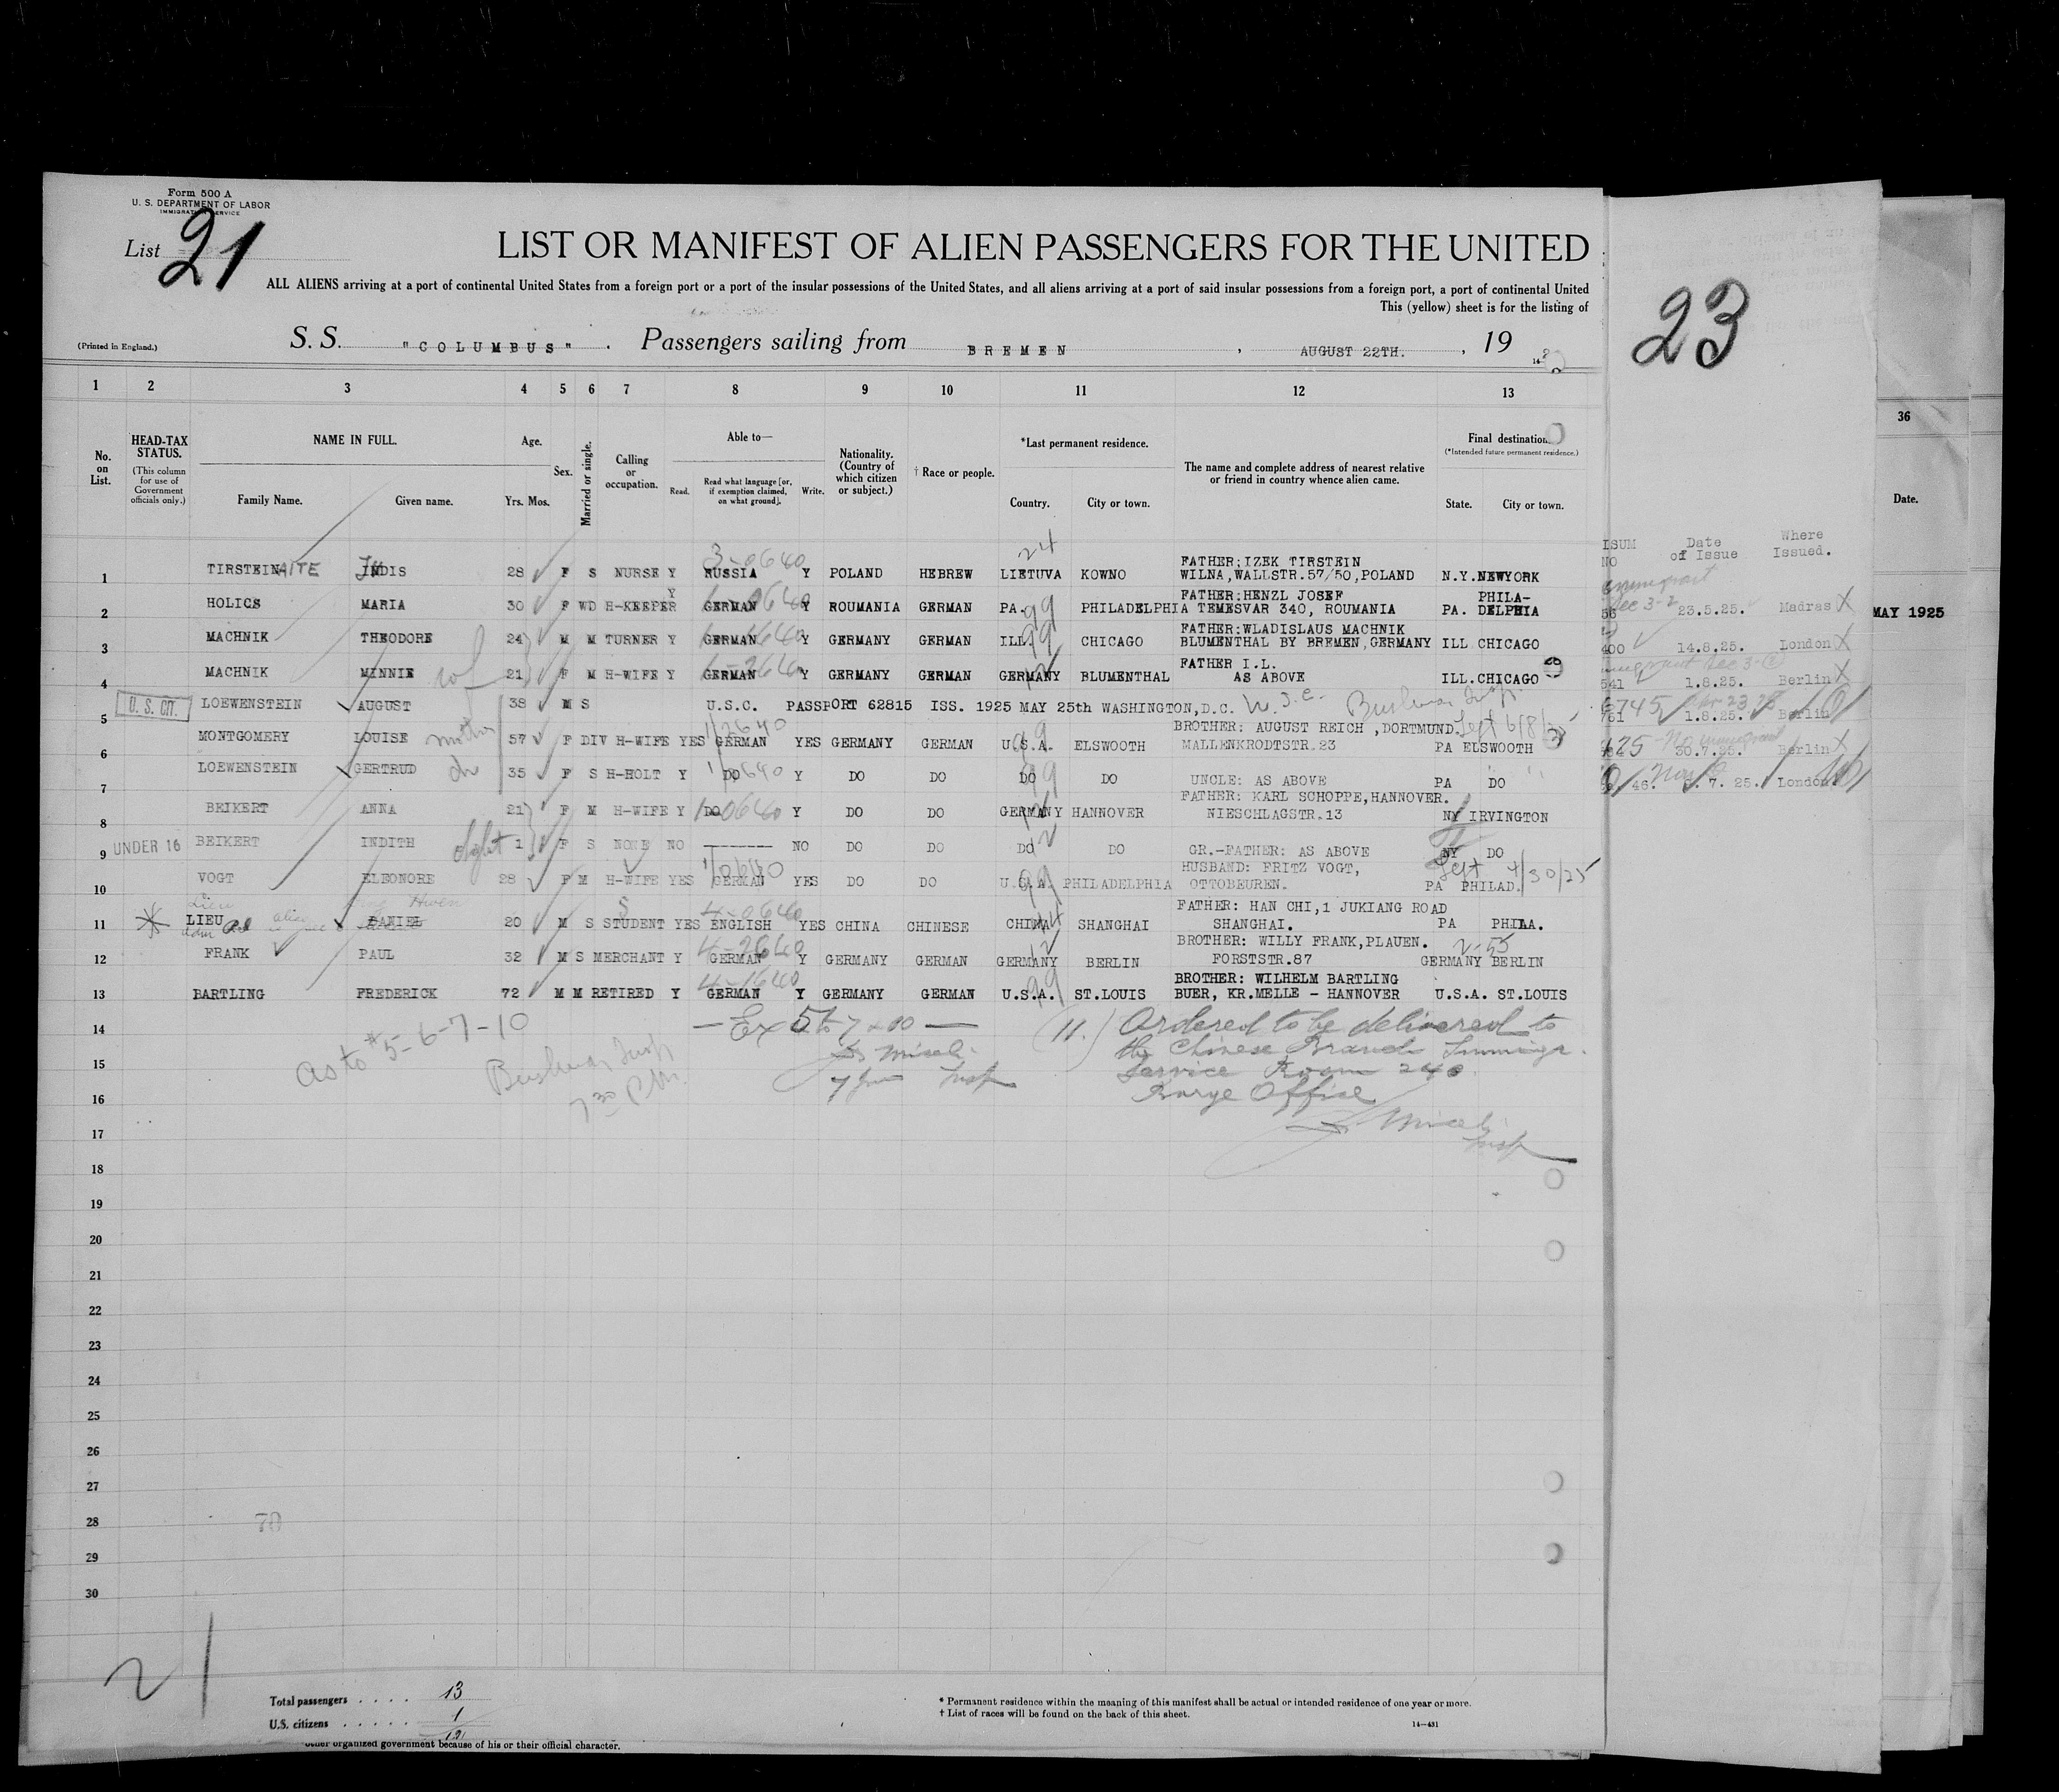 Form 500 A
U. S. DEPARTMENT OF LABOR
IMMIGRATION SERVICE
List 21
LIST OR MANIFEST OF ALIEN PASSENGERS FOR THE UNITED
ALL ALIENS arriving at a port of continental United States from a foreign port or a port of the insular possessions of the United States, and all aliens arriving at a port of said insular possessions from a foreign port, a port of continental United
This (yellow) sheet is for the listing of
(Printed in England.) S. S. "COLUMBUS". Passengers sailing from BREMEN, AUGUST 22TH., 19
23
1 2 3 4 5 6 7 8 9 10 11 12 13
36
No. on List.
HEAD-TAX STATUS.
(This column for use of Government officials only.)
NAME IN FULL.
Family Name. Given name.
Age.
Yrs. Mos.
Sex.
Married or single.
Calling or occupation.
Able to—
Read. Read what language [or, if exemption claimed, on what ground]. Write.
Nationality. (Country of which citizen or subject.)
† Race or people.
*Last permanent residence.
Country. City or town.
The name and complete address of nearest relative or friend in country whence alien came.
Final destination.
(*Intended future permanent residence.)
State. City or town.
Date.
ISUM NO Date of Issue Where Issued.
1 TIRSTEINAITE JUDIS 28 F S NURSE Y RUSSIA Y POLAND HEBREW LIETUVA KOWNO FATHER:IZEK TIRSTEIN
WILNA,WALLSTR.57/50,POLAND N.Y.NEWYORK
3-0640 24
2 HOLICS MARIA 30 F WD H-KEEPER Y GERMAN Y ROUMANIA GERMAN PA. PHILADELPHIA FATHER:HENZL JOSEF
TEMESVAR 340, ROUMANIA PA. PHILA-
DELPHIA
99
56 23.5.25. Madras X
MAY 1925
3 MACHNIK THEODORE 24 M M TURNER Y GERMAN Y GERMANY GERMAN ILL. CHICAGO FATHER:WLADISLAUS MACHNIK
BLUMENTHAL BY BREMEN,GERMANY ILL CHICAGO
99
400 14.8.25. London X
4 MACHNIK MINNIE wf 21 F M H-WIFE Y GERMAN Y GERMANY GERMAN GERMANY BLUMENTHAL FATHER I.L.
AS ABOVE ILL.CHICAGO
12
541 1.8.25. Berlin X
5 U. S. CIT. LOEWENSTEIN AUGUST 38 M S U.S.C. PASSPORT 62815 ISS. 1925 MAY 25th WASHINGTON,D.C.
761 1.8.25. Berlin
6 MONTGOMERY LOUISE mother 57 F DIV H-WIFE YES GERMAN YES GERMANY GERMAN U.S.A. ELSWOOTH BROTHER: AUGUST REICH ,DORTMUND.
MALLENKRODTSTR.23 PA ELSWOOTH
99
30.7.25. Berlin X
7 LOEWENSTEIN GERTRUD 35 F S H-HOLT Y DO Y DO DO DO DO UNCLE: AS ABOVE PA DO
99
46. 7. 25. London
8 BEIKERT ANNA 21 F M H-WIFE Y DO Y DO DO GERMANY HANNOVER FATHER: KARL SCHOPPE,HANNOVER.
NIESCHLAGSTR.13 NY IRVINGTON
12
9 UNDER 16 BEIKERT INDITH dght 1 F S NONE NO ------- NO DO DO DO DO GR.-FATHER: AS ABOVE NY DO
12
10 VOGT ELEONORE 28 F M H-WIFE YES GERMAN YES DO DO U.S.A. PHILADELPHIA HUSBAND: FRITZ VOGT,
OTTOBEUREN. PA PHILAD.
99 Left 4/30/25
11 LIEU DANIEL 20 M S STUDENT YES ENGLISH YES CHINA CHINESE CHINA SHANGHAI FATHER: HAN CHI,1 JUKIANG ROAD
SHANGHAI. PA PHILA.
4-0640
12 FRANK PAUL 32 M S MERCHANT Y GERMAN Y GERMANY GERMAN GERMANY BERLIN BROTHER: WILLY FRANK,PLAUEN.
FORSTSTR.87 GERMANY BERLIN
4-2640 12
13 BARTLING FREDERICK 72 M M RETIRED Y GERMAN Y GERMANY GERMAN U.S.A. ST.LOUIS BROTHER: WILHELM BARTLING
BUER, KR.MELLE - HANNOVER U.S.A. ST.LOUIS
4-1640 99
14
as to #5-6-7-10
(11.) Ordered to be delivered to
the Chinese Branch Immigr.
Service Room 240
Barge Office
15
16
17
18
19
20
21
22
23
24
25
26
27
28
29
30
78
21
Total passengers . . . . 13
U.S. citizens . . . . . 1
12
other organized government because of his or their official character.
* Permanent residence within the meaning of this manifest shall be actual or intended residence of one year or more.
† List of races will be found on the back of this sheet.
14—431